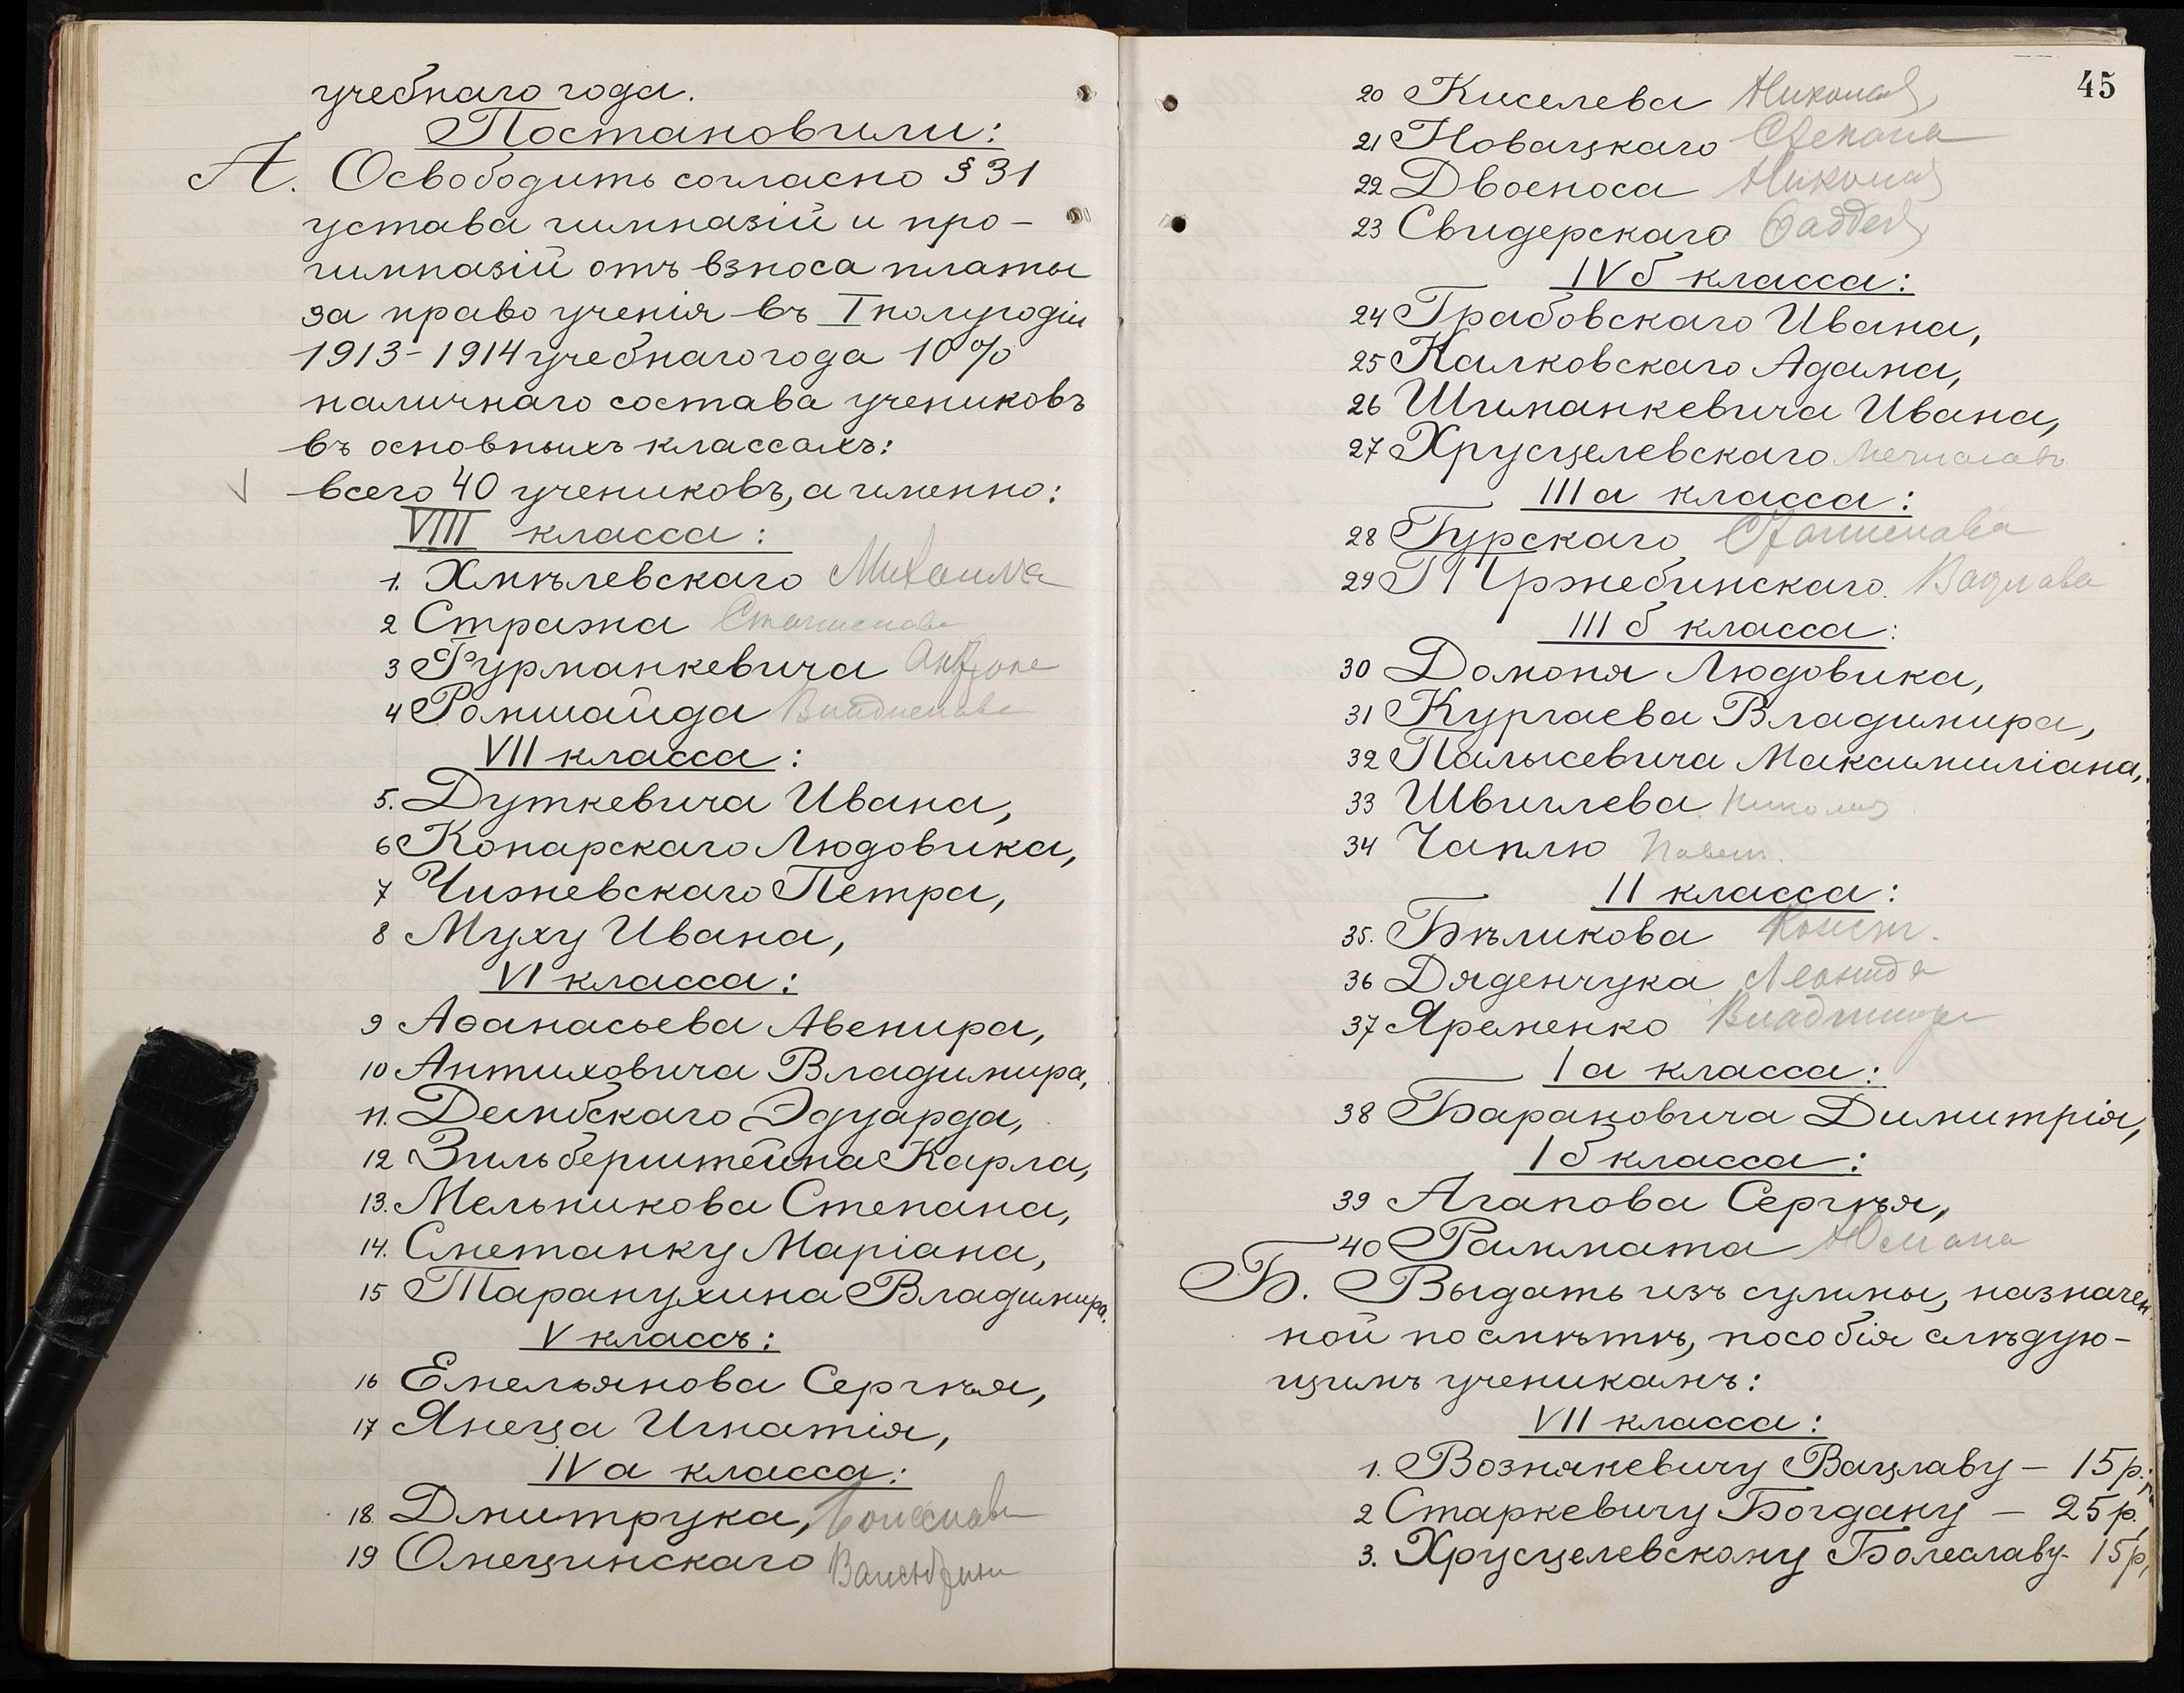 учебнаго года.
Постановили:
А. Освободить согласно § 31
устава гимназій и про-
гимназій отъ взноса платы
за право ученія въ I полугодіи
1913-1914 учебнаго года 10%
наличнаго состава учениковъ
въ основныхъ классахъ:
всего 40 учениковъ, а именно:
VIII класса:
1. Хмѣлевскаго Михаила
2 Стража Станислава
3 Фурманкевича Антона
4 Ромшайда Владислава
VII класса:
5. Дуткевича Ивана,
6 Конарскаго Людовика,
7 Чижевскаго Петра,
8 Муху Ивана,
VI класса:
9 Аѳанасьева Авенира,
10 Антиховича Владимира,
11. Дембскаго Эдуарда,
12 Зильберштейна Карла,
13. Мельникова Степана,
14. Сметанку Маріана,
15 Таранухина Владимира.
V классъ:
16 Емельянова Сергѣя,
17 Янеца Игнатія,
IV а класса:
18. Дмитрука,
19 Омецинскаго Валентина
45
20 Киселева Николая,
21 Новацкаго Степана
22 Двоеноса Николая
23 Свидерскаго Фаддея,
IV б класса:
24 Грабовскаго Ивана,
25 Калковскаго Адама,
26 Шиманкевича Ивана,
27 Хрусцелевскаго Мечислав
III а класса:
28 Гурскаго Станислава
29 Пржебинскаго. Вацлава
III б класса:
30 Домоня Людовика,
31 Кургаева Владимира,
32 Палысевича Максимиліана,
33 Швилева Николая
34 Чаплю Павел.
II класса:
35. Бѣликова Конст.
36 Дяденчука Леонида
37 Яременко Владимира
I а класса:
38 Барановича Димитрія,
I б класса:
39 Агапова Сергѣя,
40 Раммата Юлиана
Б. Выдать изъ суммы, назначен
ной по смѣтѣ, пособія слѣдую-
щимъ ученикамъ:
VII класса:
1. Вознякевичу Вацлаву - 15 р.;
2 Старкевичу Богдану - 25 р.
3. Хрусцелевскому Болеславу- 15 р,